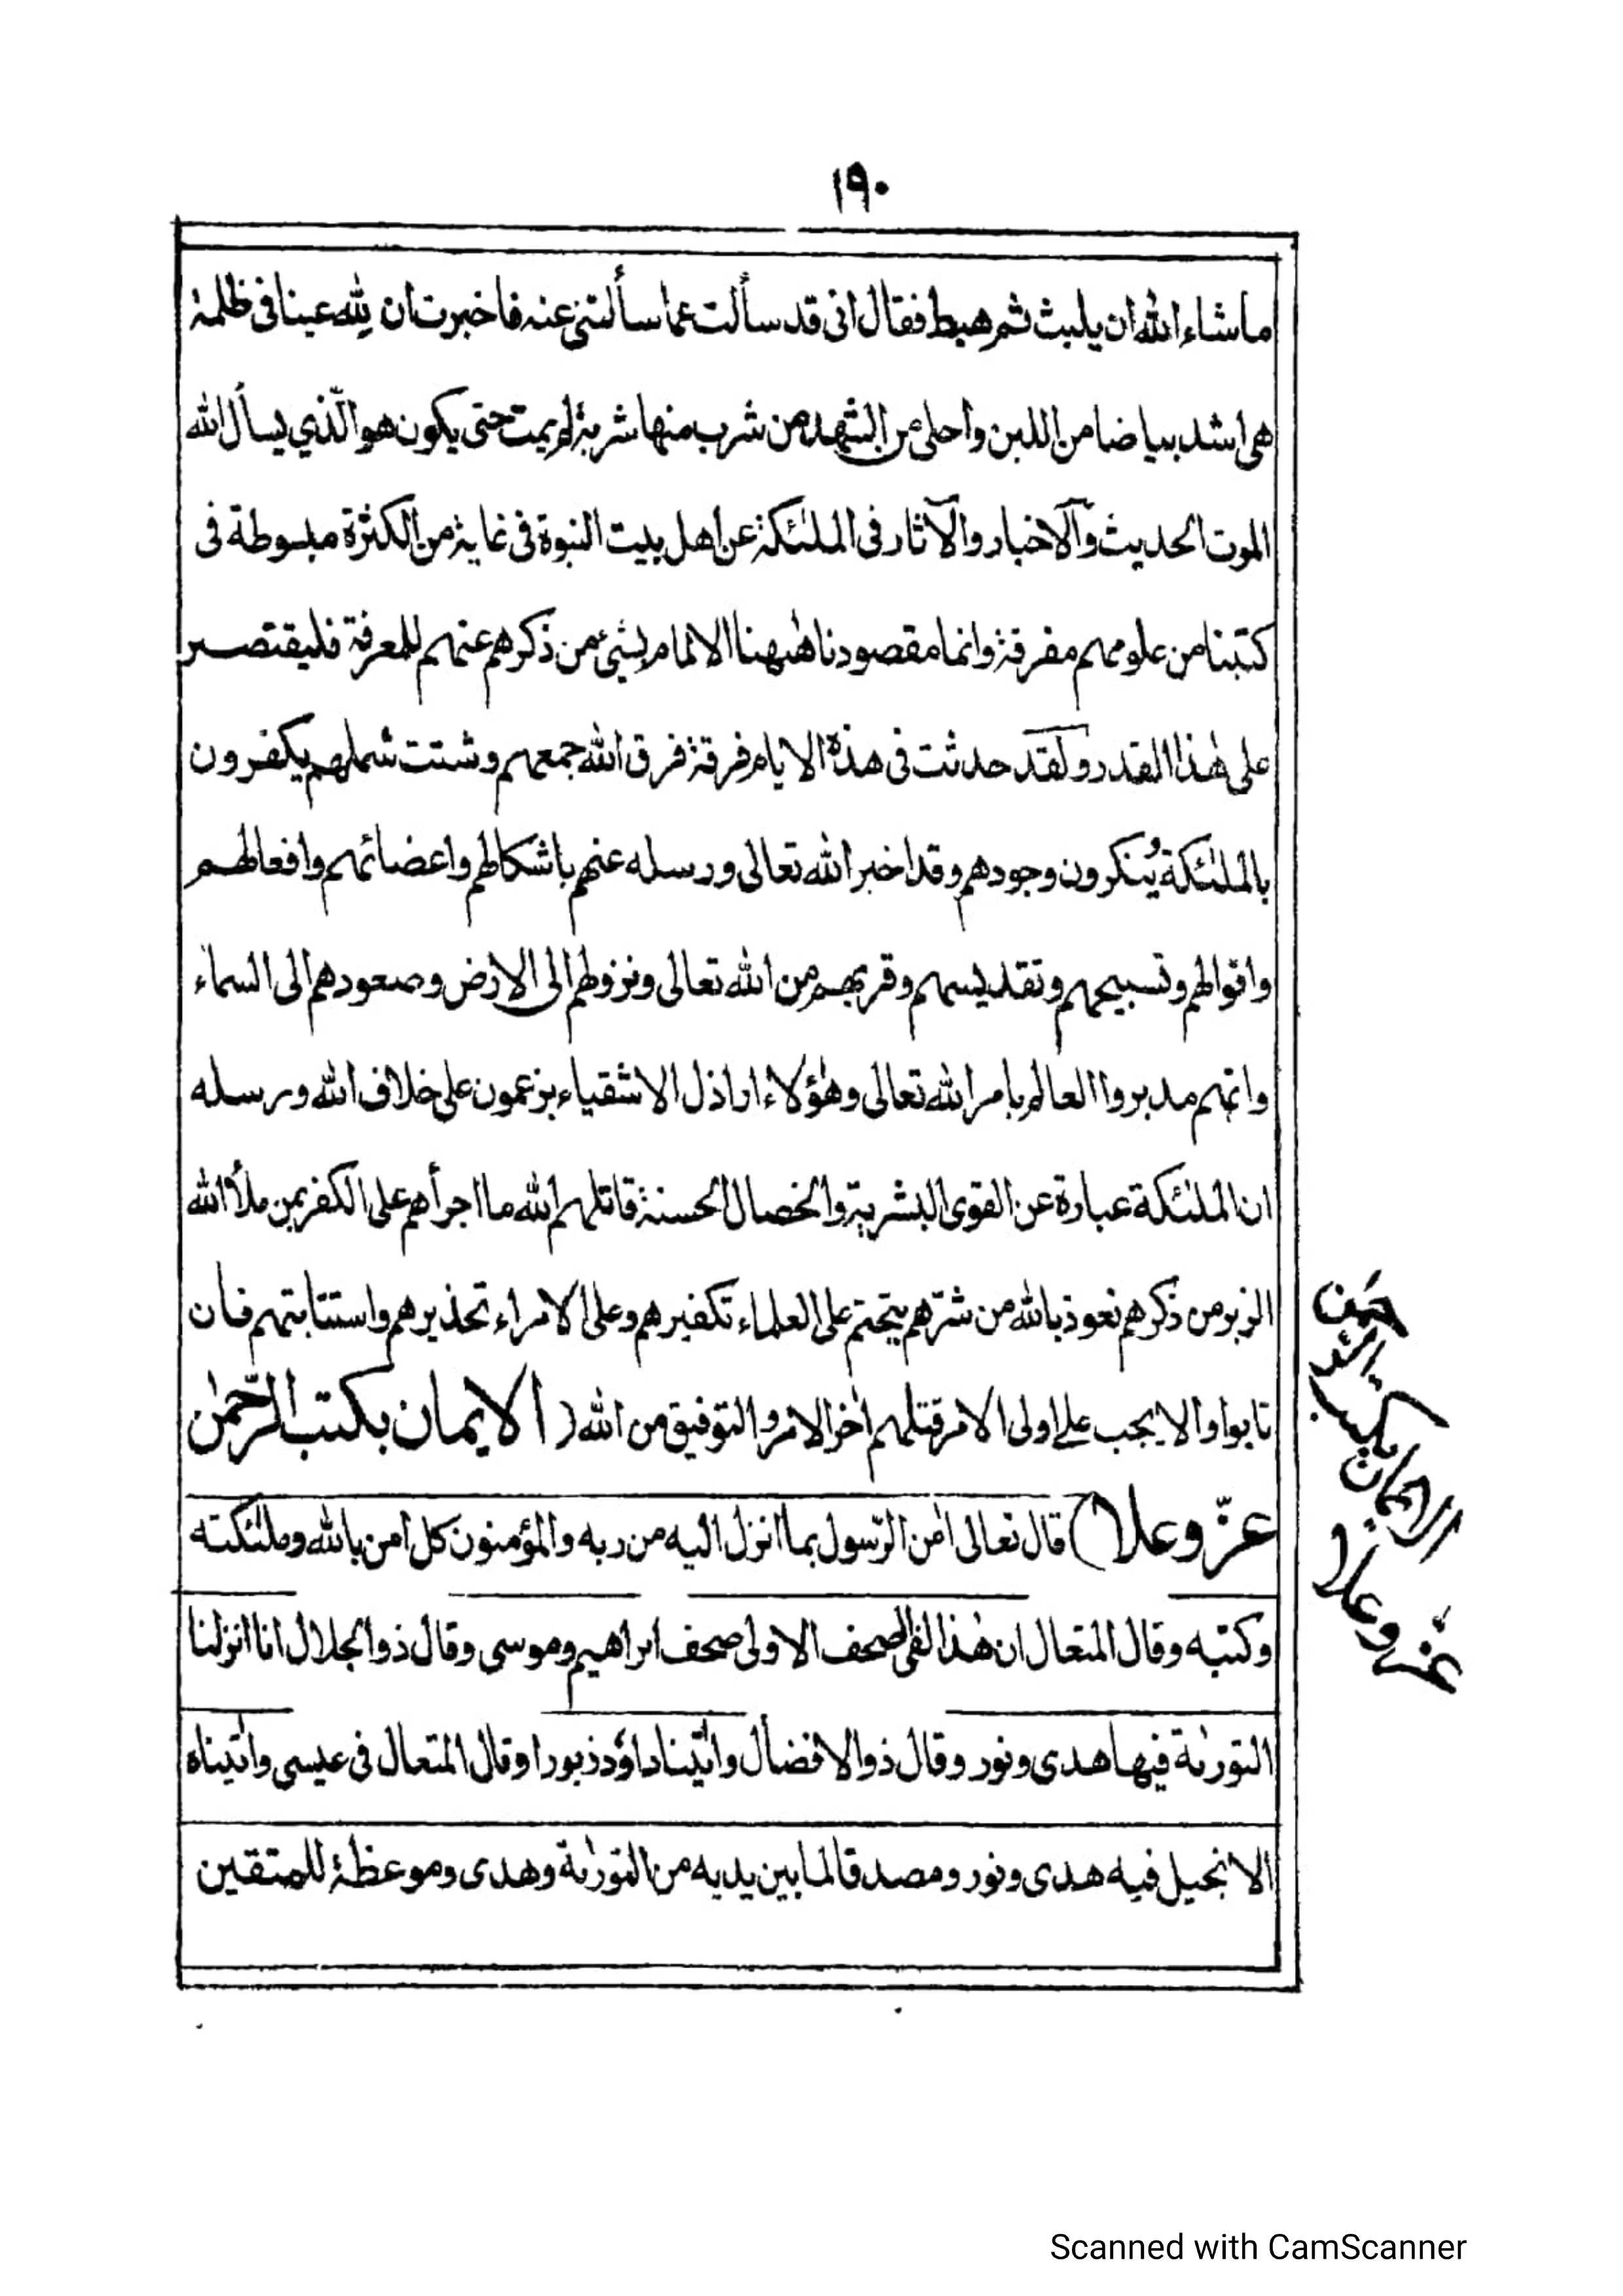 ١٩٠
ما شاء الله ان يلبث ثم هبط فقال انى قد سألت عما سألتنى عنه فاخبرت ان لِلّٰه عينا فى ظلمة
هى اشد بياضا من اللبن واحلى من الشهد من شرب منها شربة لم يمت حتى يكون هو الّذي يسأل الله
الموت الحديث والاخبار والآثار فى الملٰئكة عن اهل بيت النبوة فى غاية من الكثرة مبسوطة فى
كتبنا من علومهم مفرقة وانما مقصودنا هٰهنا الالمام بشئ من ذكرهم عنهم للمعرفة فليقتصر
على هٰذا القدر ولقد حدثت فى هذه الايام فرقة فرق الله جمعهم وشتت شملهم يكفرون
بالملٰئكة يُنكرون وجودهم وقد اخبر الله تعالى ورسله عنهم باشكالهم واعضائهم وافعالهم
واقوالهم وتسبيحهم وتقديسهم وقربهم من الله تعالى ونزولهم الى الارض وصعودهم الى السماء
وانهم مدبروا العالم بامر الله تعالى وهٰؤلاء اراذل الاشقياء يزعمون على خلاف الله ورسله
ان الملٰئكة عبارة عن القوى البشرية والخصال الحسنة قاتلهم الله ما اجرأهم على الكفر بمن ملأ الله
الزبر من ذكرهم نعوذ بالله من شرّهم يتحتم على العلماء تكفيرهم وعلى الامراء تحذيرهم واستتابتهم فان
تابوا والا يجب على اولى الامر قتلهم اٰخر الامر والتوفيق من الله ( الايمان بكتب الرّحمٰن
عزّ وعلا ) قال تعالى اٰمن الرّسول بما انزل اليه من ربه والمؤمنون كل اٰمن بالله وملٰئكته
وكتبه وقال المتعال ان هٰذا لفى الصحف الاولى صحف ابراهيم وموسى وقال ذو الجلال انا انزلنا
التورٰىة فيها هدى ونور وقال ذو الافضال واٰتينا داوٗد زبورا وقال المتعال فى عيسى واٰتيناه
الانجيل فيه هدى ونور ومصدقا لما بين يديه من التورٰىة وهدى وموعظة للمتقين
الايمان بكتب الرّحمن
عزّ وعلا
Scanned with CamScanner